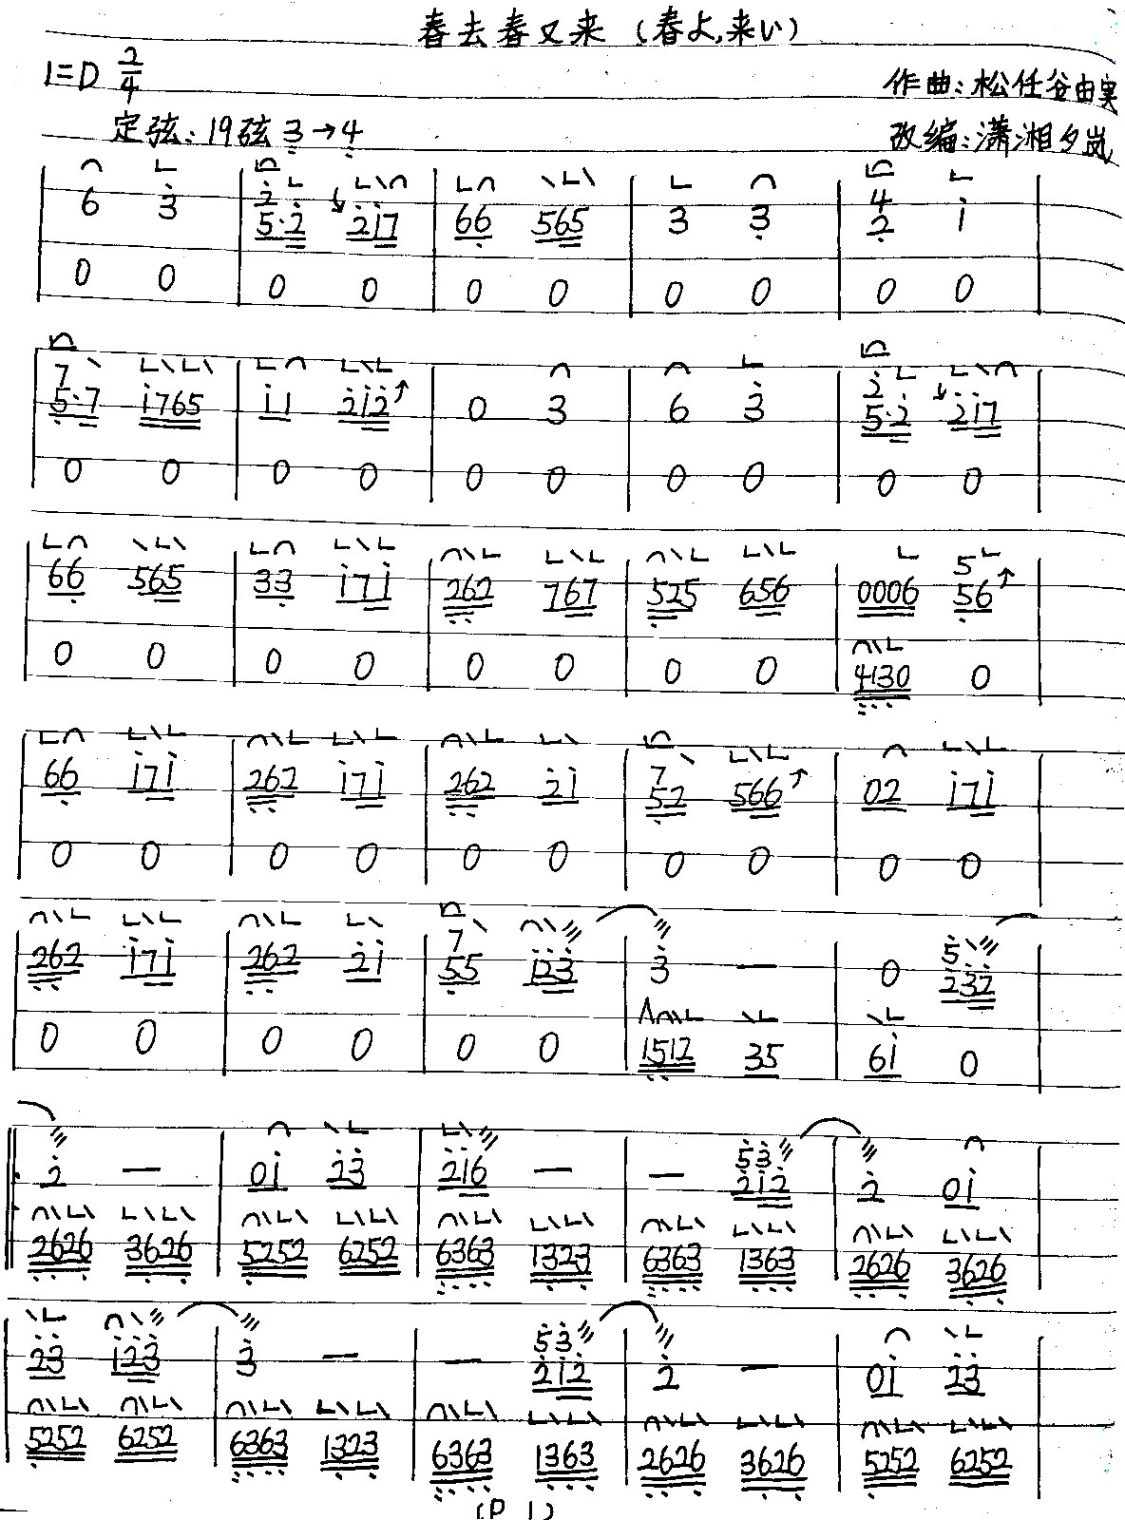 春去春又来（春よ,来い）
1=D 2/4
作曲：松任谷由実
定弦：19弦 3→4
改编：潇湘夕岚
6 3 | 2 5·2 217 | 66 565 | 3 3 | 4 2 1
0 0 | 0 0 | 0 0 | 0 0 | 0 0
7 5·7 1765 | 11 212 | 0 3 | 6 3 | 2 5·2 217
0 0 | 0 0 | 0 0 | 0 0 | 0 0
66 565 | 33 171 | 262 767 | 525 656 | 0006 5 56
0 0 | 0 0 | 0 0 | 0 0 | 4130 0
66 171 | 262 171 | 262 21 | 7 52 566 | 02 171
0 0 | 0 0 | 0 0 | 0 0 | 0 0
262 171 | 262 21 | 7 55 123 | 3 — | 0 5 232
0 0 | 0 0 | 0 0 | 1512 35 | 61 0
2 — | 01 23 | 216 — | — 53 212 | 2 01
2626 3626 | 5252 6252 | 6363 1323 | 6363 1363 | 2626 3626
23 123 | 3 — | — 53 212 | 2 — | 01 23
5252 6252 | 6363 1323 | 6363 1363 | 2626 3626 | 5252 6252
(P 1)